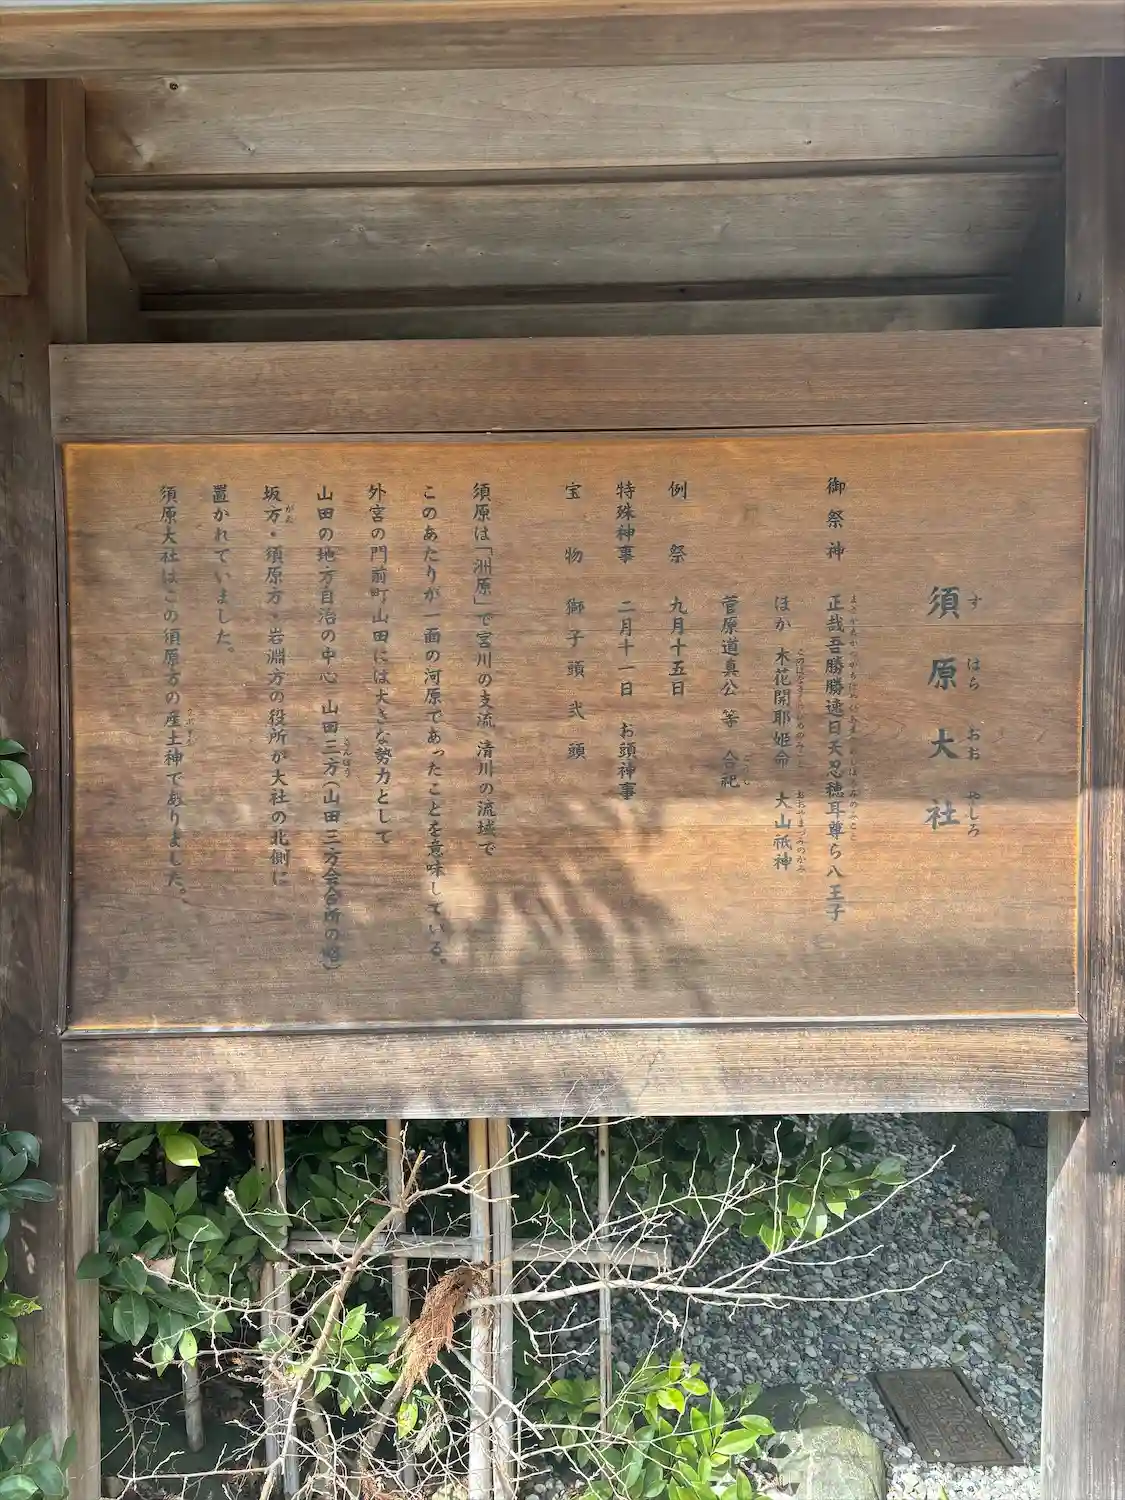 須原大社
すはらおおやしろ
御祭神 正哉吾勝勝速日天忍穂耳尊ら八王子
ほか 木花開耶姫命 大山祇神
このはなさくやひめのみこと おおやまつみのかみ
菅原道真公 等 合祀
ごうし
例祭 九月十五日
特殊神事 二月十一日 お頭神事
宝物 獅子頭 弐頭
須原は「洲原」で宮川の支流 清川の流域で
このあたりが一面の河原であったことを意味している。
外宮の門前町山田には大きな勢力として
山田の地方自治の中心 山田三方(山田三方会合所の略)
さんぽう
坂方・須原方・岩淵方の役所が大社の北側に
がた
置かれていました。
須原大社はこの須原方の産土神でありました。